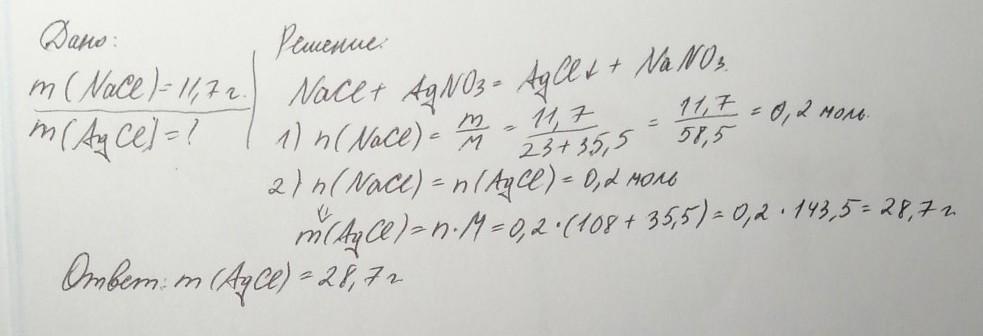 Дано:
m(NaCl)=11,7 г.
m(AgCl)=?
Решение:
NaCl + AgNO₃ = AgCl↓ + NaNO₃.
1) n(NaCl) = m/M = 11,7/(23+35,5) = 11,7/58,5 = 0,2 моль.
2) n(NaCl) = n(AgCl) = 0,2 моль
⇓
m(AgCl) = n·M = 0,2·(108+35,5) = 0,2·143,5 = 28,7 г
Ответ: m(AgCl) = 28,7 г